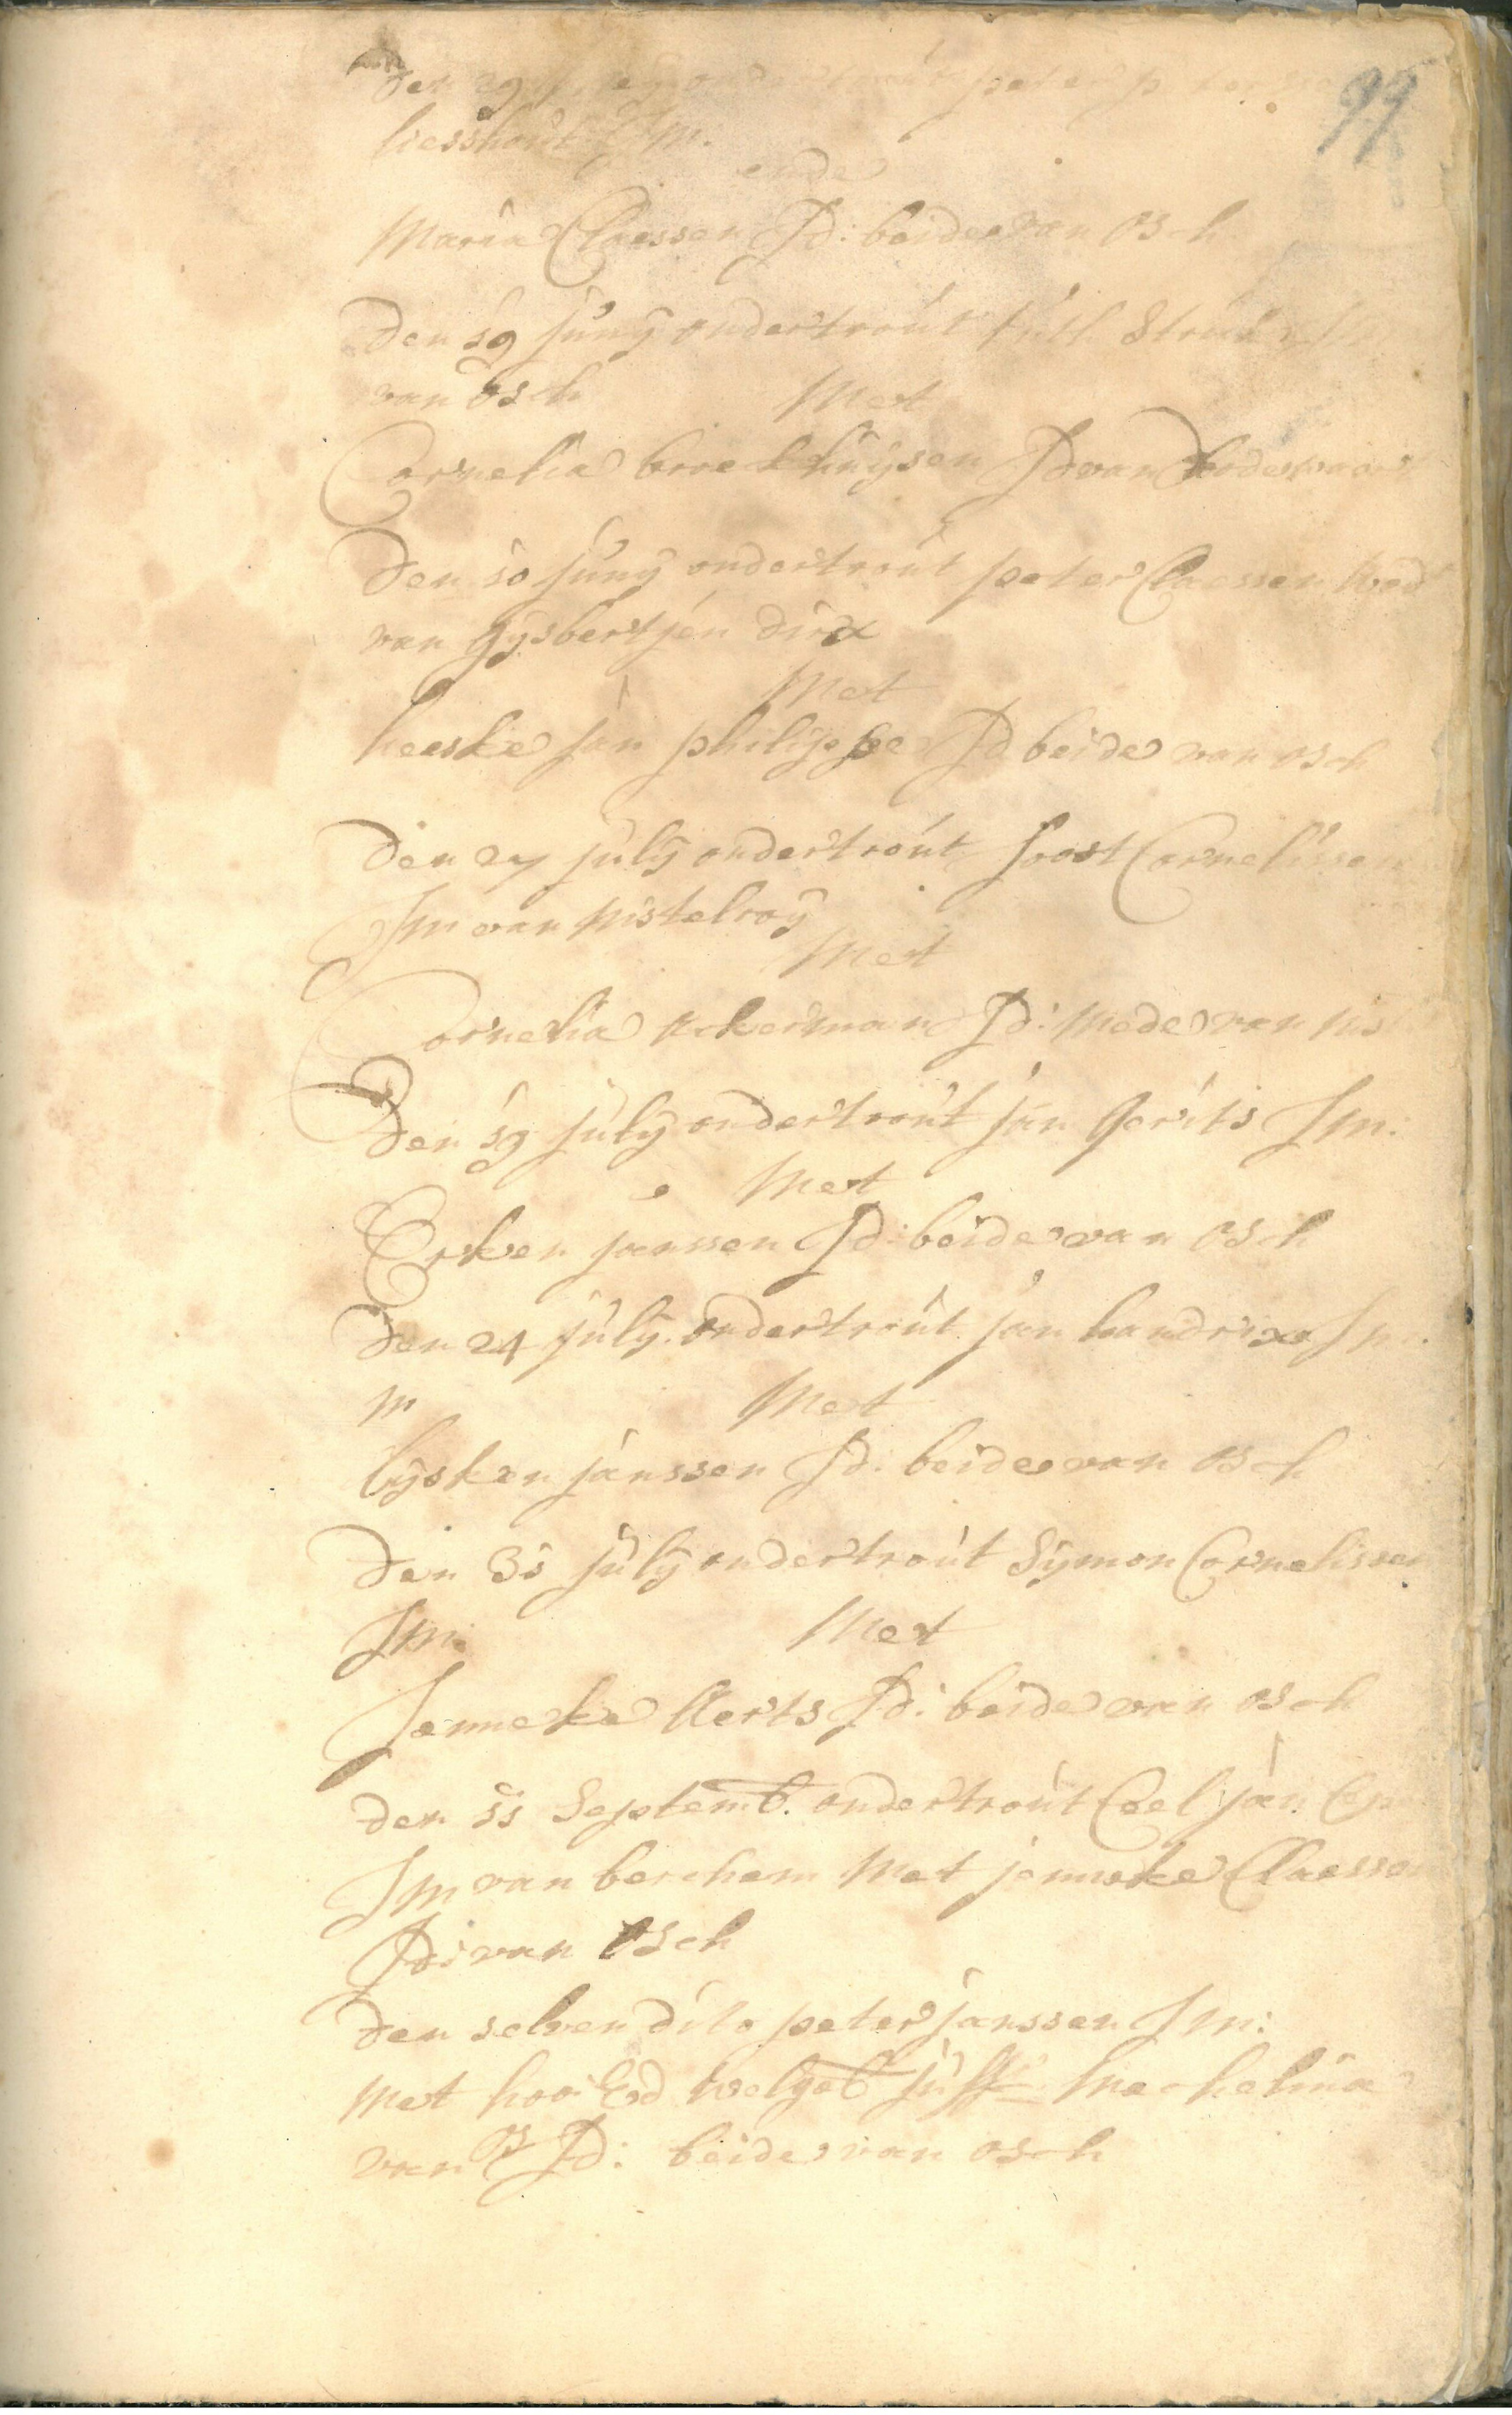 99
Den 29 peter
liesshout Jm.
ende
Maria Claessen Jd: beide van Osch
Den 19 Juny ondertrout
van Osch Met
Cornelia broeckhuysen Jd van
Den 10 Juny ondertrout peter Claessen Wed
van Gysbertjen dirx
Met
heeske Jan philippe Jd beide van Osch
Den 27 July ondertrout Joost Cornelissen
Jm van Nistelroy
Met
Cornelia Ackerman Jd: Mede van Nist
Den 19 July ondertrout Jan Gerits Jm:
Met
Erken janssen Jd: beide van Osch
Den 24 July ondertrout jan handrixs Jm.
m Met
lysken janssen Jd: beide van Osch
Den 31 July ondertrout Symon Cornelissen
Jm: Met
Jenneke Aerts Jd: beide van Osch
den 11 Septemb. ondertrout Ceel jan
Jm van berchem Met jenneke Claessen
Jd: van Osch
Den selven dito peter janssen Jm:
Met hoo: Ed Welgeb: juff:
van Jd: beide van Osch